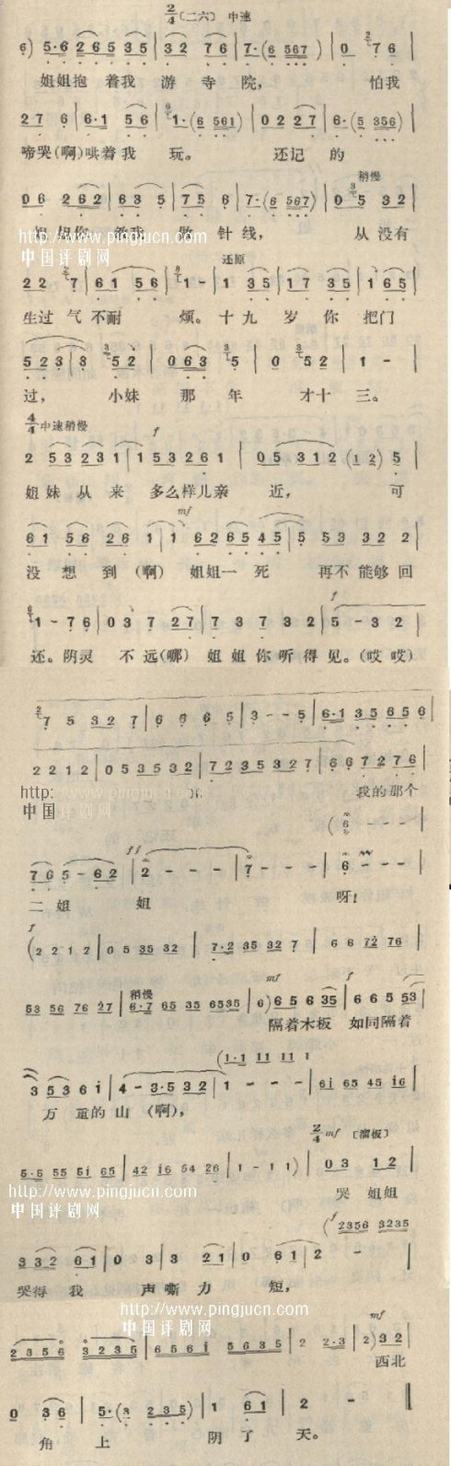 2/4 (二六) 中速
6) 5·6 265 35 | 32 76 | 7·(6 567) | 0 2 76 |
姐姐抱 着我 游 寺 院, 怕我
276 | 6·1 56 | 1·(6 561) | 0 2 27 | 6·(5 356) |
啼哭(啊)哄着我 玩。 还记 的
稍慢
06 262 | 63 35 | 75 6 | 7·(6 567) | 05 32 |
http://www.pingjucn.com
针 线, 从 没有
中国评剧网
还原
22 7 | 61 56 | 1 - | 1 35 | 17 35 | 1 65 |
生过 气 不耐 烦。 十 九 岁 你 把门
523 | 3 52 | 063 5 | 0 52 | 1 - |
过, 小妹 那 年 才十 三。
4/4 中速稍慢 f
2 53 231 | 1 53261 | 05 312 (12) 5 |
姐 妹 从 来 多么样儿亲 近, 可
mf
61 56 26 1 | 1 62 65 45 | 5 53 32 2 |
没 想 到 (啊) 姐姐一 死 再不 能够 回
f
1 - 76 | 03 7 27 | 7 3 7 32 | 5 - 32 |
还。阴灵 不 远(哪) 姐 姐 你 听 得 见。(哎 哎)
7 5 32 7 | 6 6 6 5 | 3 - - 5 | 6·1 35 65 6 |
2 2 1 2 | 05 35 32 | 72 35 32 7 | 6 67 276 |
http:
我的那个
中国
(6 - - - |
ff
76 5 - 62 | 2 - - - | 7 - - - | 6 - - - |
二 姐 姐 呀!
f
(2 2 1 2 | 0 5 35 32 | 7·2 35 32 7 | 6 6 72 76 |
稍慢 mf f
53 56 76 27 | 6·7 65 35 6535 | 6) 6 5 6 35 | 6 6 5 53 |
隔着木板 如同隔着
(1·1 11 11 1
3 53 6 i | 4 - 3·5 32 | 1 - - - | 6i 65 45 i6 |
万 重的 山 (啊),
2/4 mf 〔溜板〕
5·5 55 5i 65 | 42 i6 54 26 | 1 - 1 1) | 03 12 |
http://www.pingjucn.com
哭 姐姐
中国评剧网
(2356 3235
332 61 | 0 3 | 3 21 | 0 61 | 2 - |
哭得 我 声嘶 力 短,
http://www.pingjucn.com
中国评剧网
mf
2356 3235 | 656i 5635 | 2 2·3 | 2) 32 |
西北
0 36 | 5·(3 235) | 1 61 | 2 - ‖
角 上 阴 了 天。